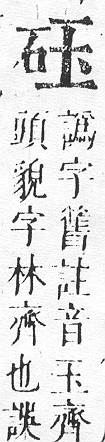 砡
譌字舊註音玉齊
頭貌字林齊也誤